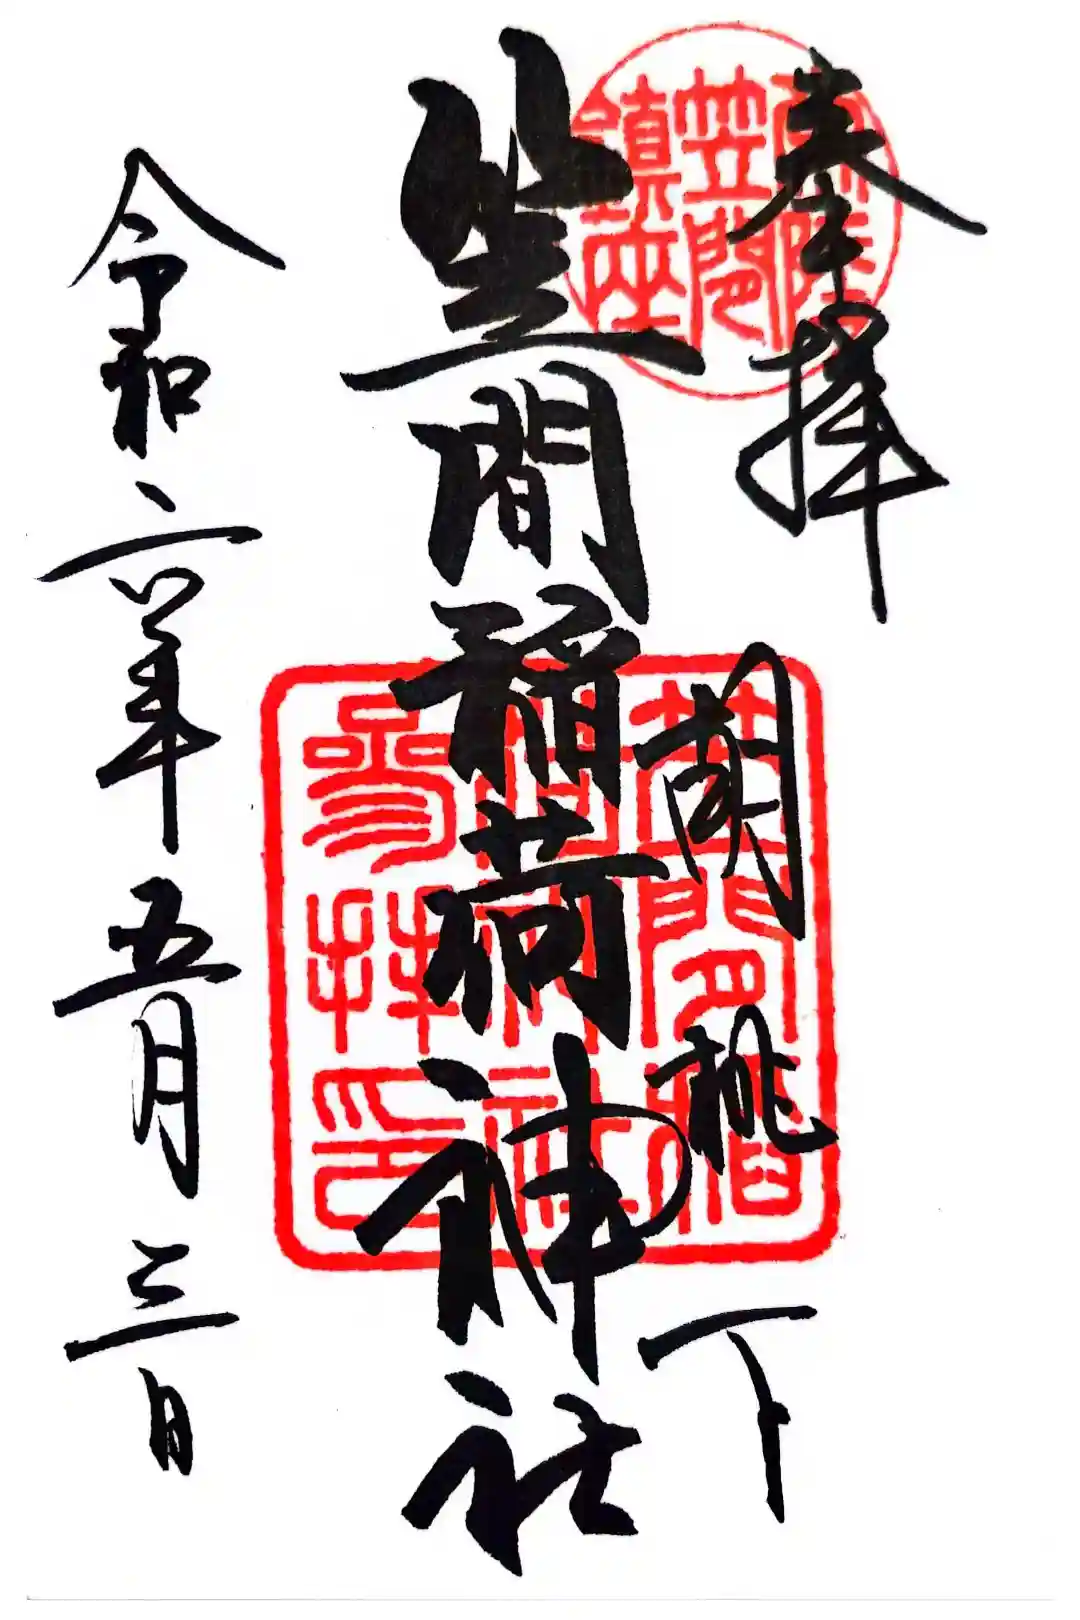 奉拝
胡桃下
笠間稲荷神社
令和六年五月三日
常陸
笠間
鎮座
笠間稲
荷神社
参拝印